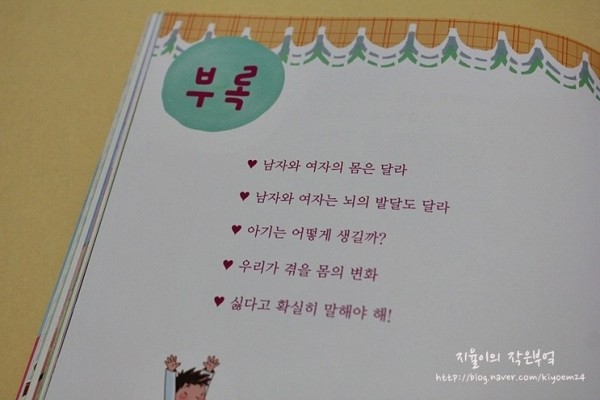 부록
♥ 남자와 여자의 몸은 달라
♥ 남자와 여자는 뇌의 발달도 달라
♥ 아기는 어떻게 생길까?
♥ 우리가 겪을 몸의 변화
♥ 싫다고 확실히 말해야 해!
지율이의 작은부엌
http://blog.naver.com/kiyoem24